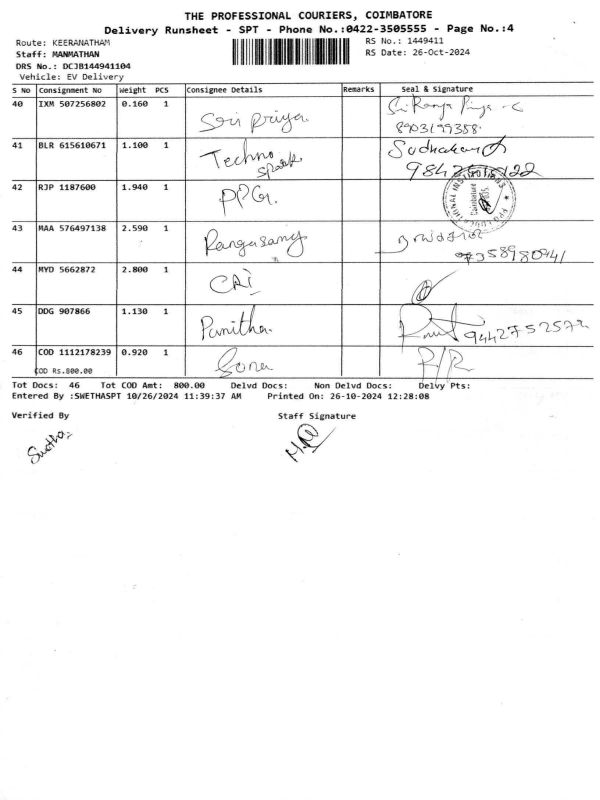 THE PROFESSIONAL COURIERS, COIMBATORE
Delivery Runsheet - SPT - Phone No.:0422-3505555 - Page No.:4
Route: KEERANATHAM
RS No.: 1449411
Staff: MANMATHAN
RS Date: 26-Oct-2024
DRS No.: DCJB144941104
Vehicle: EV Delivery
S No Consignment No Weight PCS Consignee Details Remarks Seal & Signature
40 IXM 507256802 0.160 1 Sri Priya
8903199358
41 BLR 615610671 1.100 1 Techno Spark Sudhakar
42 RJP 1187600 1.940 1 PPG.
43 MAA 576497138 2.590 1 Rangasamy
97358980941
44 MYD 5662872 2.800 1 CRI
45 DDG 907866 1.130 1 Panitha 9442752572
46 COD 1112178239 0.920 1 Sona R/R
COD Rs.800.00
Tot Docs: 46 Tot COD Amt: 800.00 Delvd Docs: Non Delvd Docs: Delvy Pts:
Entered By :SWETHASPT 10/26/2024 11:39:37 AM Printed On: 26-10-2024 12:28:08
Verified By Staff Signature
Swetha